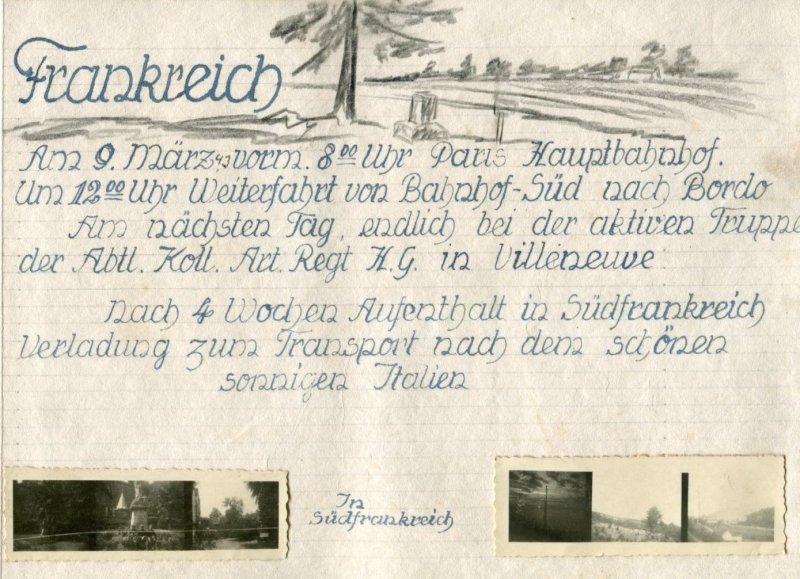 Frankreich
Am 9. März 43 vorm. 8 00 Uhr Paris Hauptbahnhof.
Um 12 00 Uhr Weiterfahrt von Bahnhof-Süd nach Bordo
Am nächsten Tag, endlich bei der aktiven Truppe
der Abtl. Koll. Art. Regt H.G. in Villeneuve
Nach 4 Wochen Aufenthalt in Südfrankreich
Verladung zum Transport nach dem schönen
sonnigen Italien
In
Südfrankreich